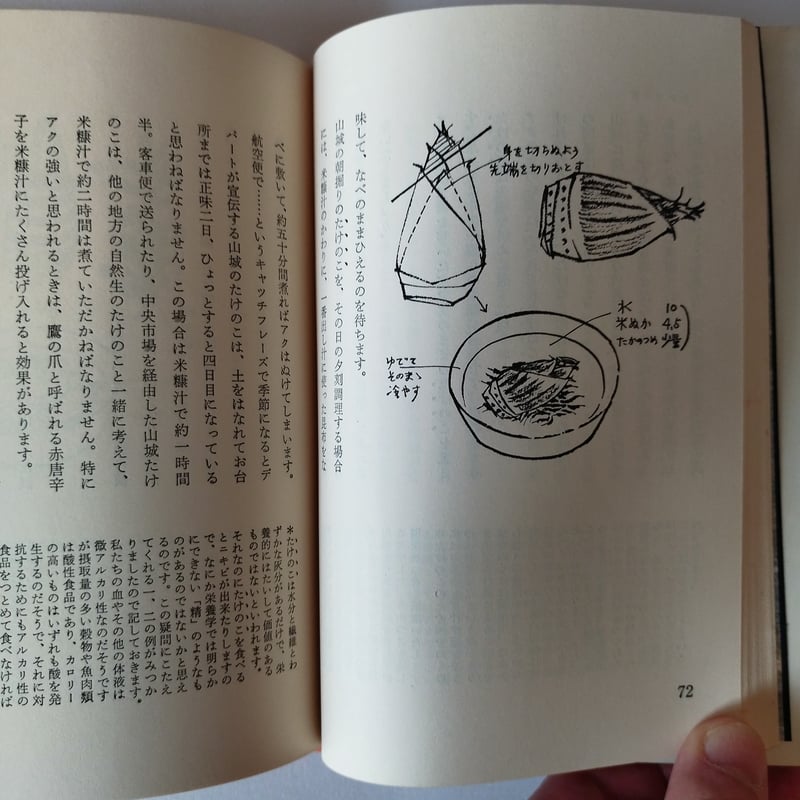 身を切らぬよう
先端を切りおとす
水 10
米ぬか 4.5
たかのつめ 少量
ゆでて
そのまゝ
冷やす
味して、なべのままひえるのを待ちます。
山城の朝掘りのたけのこを、その日の夕刻調理する場合
には、米糠汁のかわりに、一番出し汁に使った昆布をな
72
べに敷いて、約五十分間煮ればアクはぬけてしまいます。
航空便で……というキャッチフレーズで季節になるとデ
パートが宣伝する山城のたけのこは、土をはなれてお台
所までは正味二日、ひょっとすると四日目になっている
と思わねばなりません。この場合は米糠汁で約一時間
半。客車便で送られたり、中央市場を経由した山城たけ
のこは、他の地方の自然生のたけのこと一緒に考えて、
米糠汁で約二時間は煮ていただかねばなりません。特に
アクの強いと思われるときは、鷹の爪と呼ばれる赤唐辛
子を米糠汁にたくさん投げ入れると効果があります。
*たけのこは水分と繊維とわ
ずかな灰分があるだけで、栄
養的にはたいして価値のある
ものではないといわれます。
それなのにたけのこを食べる
とニキビが出来たりしますの
で、なにか栄養学では明らか
にできない「精」のようなも
のがあるのではないかと思え
るのです。この疑問にこたえ
てくれる一、二の例がみつか
りましたので記しておきます。
私たちの血やその他の体液は
微アルカリ性なのだそうです
が摂取量の多い穀物や魚肉類
は酸性食品であり、カロリー
の高いものはいずれも酸を発
生するのだそうで、それに対
抗するためにもアルカリ性の
食品をつとめて食べなければ